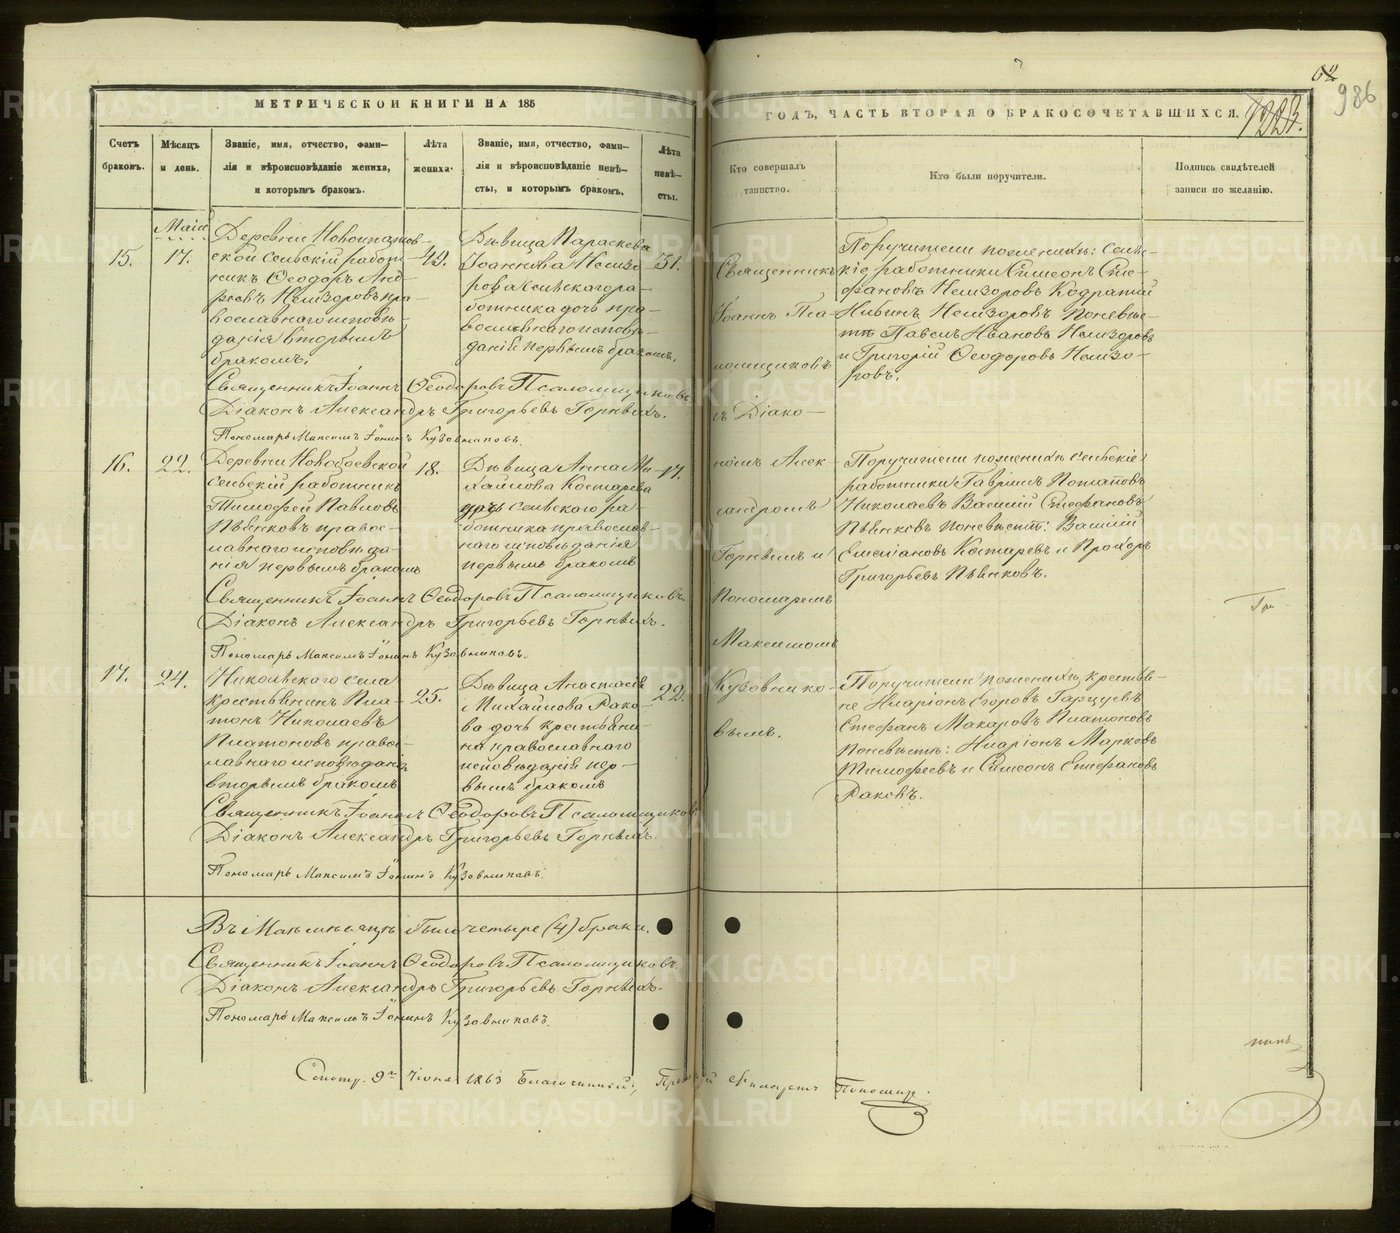 62
986
1223.
МЕТРИЧЕСКОЙ КНИГИ НА 185
ГОДЪ, ЧАСТЬ ВТОРАЯ О БРАКОСОЧЕТАВШИХСЯ.
Счетъ браковъ.
Мѣсяцъ и день.
Званіе, имя, отчество, фами-
лія и вѣроисповѣданіе жениха,
и которымъ бракомъ.
Лѣта жениха.
Званіе, имя, отчество, фами-
лія и вѣроисповѣданіе невѣ-
сты, и которымъ бракомъ.
Лѣта невѣ-
сты.
Кто совершалъ таинство.
Кто были поручители.
Подпись свидѣтелей записи по желанію.
Маія
15.
17.
Деревни
ской сельскій работ-
никъ Ѳеодоръ Анд-
реевъ пра-
вославнаго исповѣ-
данія вторымъ
бракомъ.
Дѣвица Параскева
Іоаннова
сельскаго ра-
ботника дочь пра-
вославнаго исповѣ-
данія первымъ бракомъ.
31.
Священникъ
Іоаннъ Пса-
ломщиковъ
съ Діако-
номъ Алек-
сандромъ
Горныхъ и
Пономаремъ
Максимомъ
Кузовнико-
вымъ.
Поручители по женихѣ: сель-
скіе работники Симеонъ Сте-
фановъ Кодратий
по невѣс-
тѣ Павелъ Ивановъ
и Григорій Ѳеодоровъ
Священникъ Іоаннъ Ѳеодоровъ Псаломщиковъ.
Діаконъ Александръ Григорьевъ Горныхъ.
Пономарь Максимъ Іонинъ Кузовниковъ.
16.
22.
Деревни Новобоевской
сельскій работникъ
Тимофей Павловъ
Пьянковъ правос-
лавнаго исповѣда-
нія первымъ бракомъ
18.
Дѣвица Анна Ми-
хайлова Костарева
дочь сельскаго ра-
ботника православ-
наго исповѣданія
первымъ бракомъ
17.
Поручители по женихѣ сельскіе
работники Гавріилъ Потаповъ
Николаевъ Василій Стефановъ
Пьянковъ по невѣстѣ: Василій
Емельяновъ Костаревъ и Прохоръ
Григорьевъ Пьянковъ.
Священникъ Іоаннъ Ѳеодоровъ Псаломщиковъ.
Діаконъ Александръ Григорьевъ Горныхъ.
Пономарь Максимъ Іонинъ Кузовниковъ.
17.
24.
Никольскаго села
крестьянинъ Пла-
тонъ Николаевъ
Платоновъ правос-
лавнаго исповѣданія
вторымъ бракомъ
25.
Дѣвица Анастасія
Михайлова Рако-
ва дочь крестьяни-
на православнаго
исповѣданія пер-
вымъ бракомъ
22.
Поручители по женихѣ, крестья-
не Иларіонъ Егоровъ
Стефанъ Макаровъ Платоновъ
по невѣстѣ: Иларіонъ Марковъ
Тимофеевъ и Симеонъ Стефановъ
Раковъ.
Священникъ Іоаннъ Ѳеодоровъ Псаломщиковъ
Діаконъ Александръ Григорьевъ Горныхъ.
Пономарь Максимъ Іонинъ Кузовниковъ.
Въ Маѣ мѣсяцѣ было четыре (4) брака.
Священникъ Іоаннъ Ѳеодоровъ Псаломщиковъ.
Діаконъ Александръ Григорьевъ Горныхъ.
Пономарь Максимъ Іонинъ Кузовниковъ.
Смотр. 9го Іюня 1863 Благочинный,
METRIKI.GASO-URAL.RU